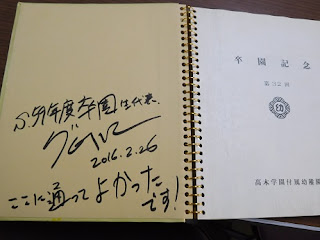 59年度卒園生代表.
2016.2.26
ここに通ってよかった
です!
卒園記念
幼
高木学園付属幼稚園